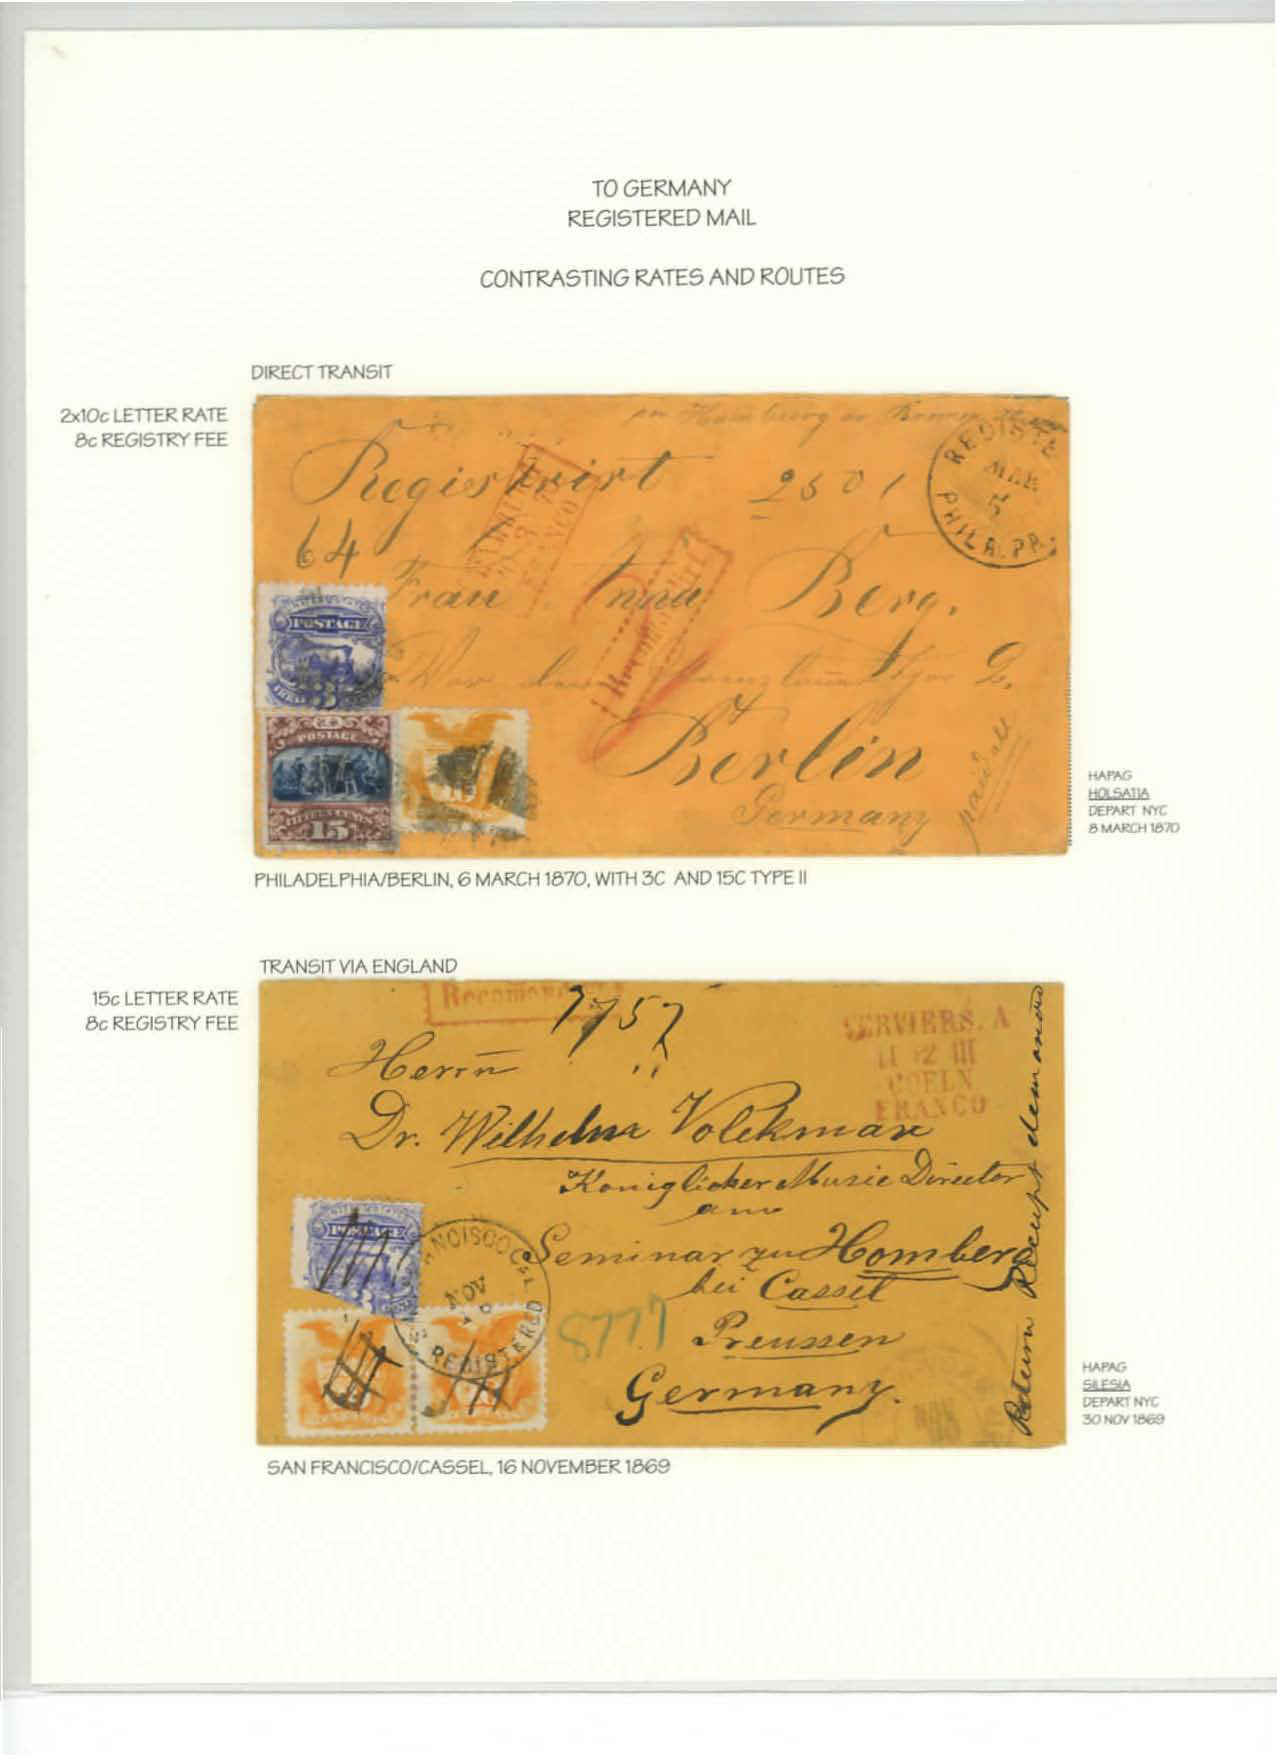 TO GERMANY
REGISTERED MAIL
CONTRASTING RATES AND ROUTES
DIRECT TRANSIT
2x10c LETTER RATE
8c REGISTRY FEE
per Hamburg or Bremen
Registrirt
2501
REGISTE
MAR
5
PHILA. PA.
64
FRANCO
Frau Anna Berg.
Recomandirt
2
POSTAGE
POSTAGE
FIFTEEN CENTS
15
Berlin
Germany
paid all
HAPAG
HOLSATIA
DEPART NYC
8 MARCH 1870
PHILADELPHIA/BERLIN, 6 MARCH 1870, WITH 3C AND 15C TYPE II
TRANSIT VIA ENGLAND
15c LETTER RATE
8c REGISTRY FEE
7757
VERVIERS. A
COELN
FRANCO
Herrn
Dr. Wilhelm Volckmar
Königlicher Music Director
am
Seminar zu Homberg
bei Cassel
Preussen
Germany.
Return Receipt demanded
POSTAGE
NCISCO CAL
NOV
REGISTERED
8777
NOV
HAPAG
SILESIA
DEPART NYC
30 NOV 1869
SAN FRANCISCO/CASSEL, 16 NOVEMBER 1869